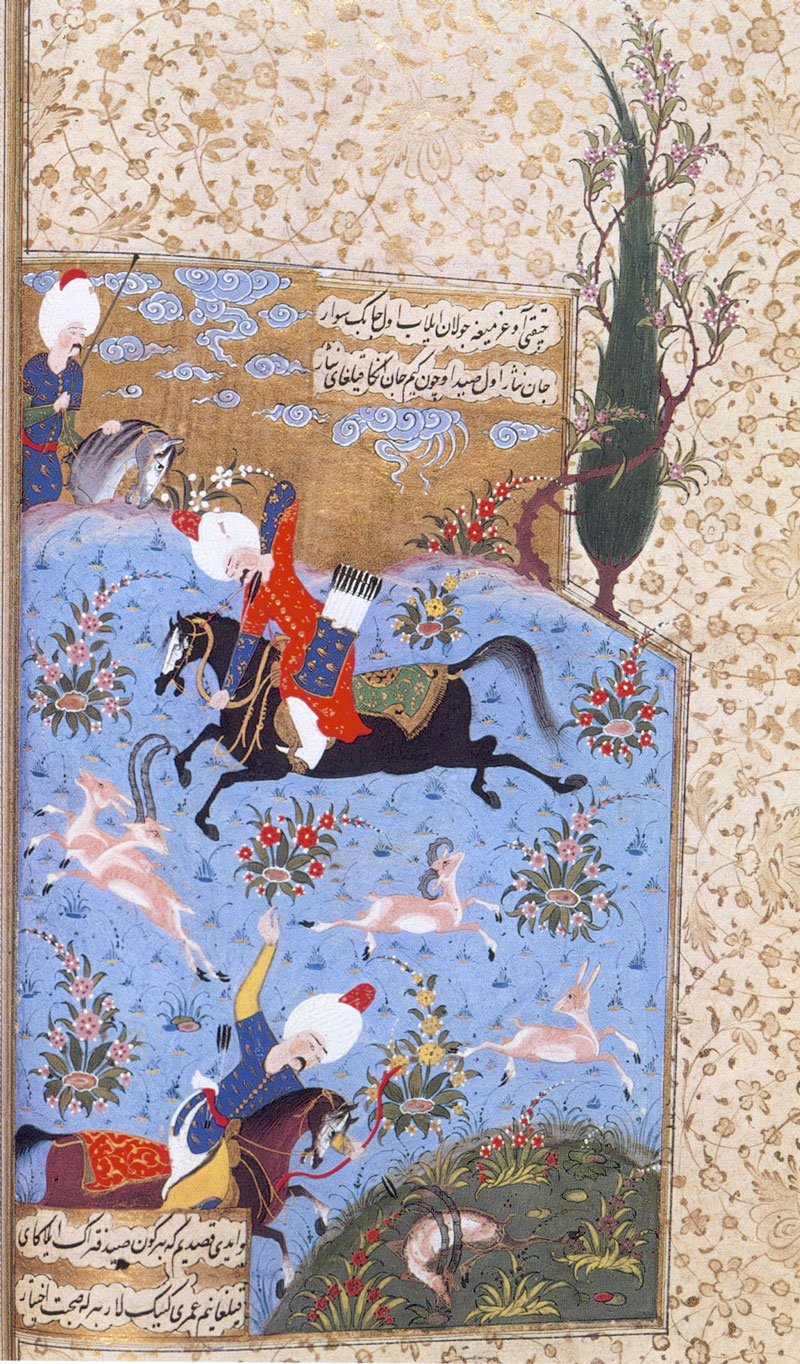 چیقتی آو عزمیغه جولان ایلاب اول چابک سوار
جان نثار اول صید اوچون کیم جان انکا قیلغای نثار
بو ایدی قصدیم که بیر کون صید فتراک ایلاکای
قیلغانیم عمری کییک لار بیرله صحبت اختیار